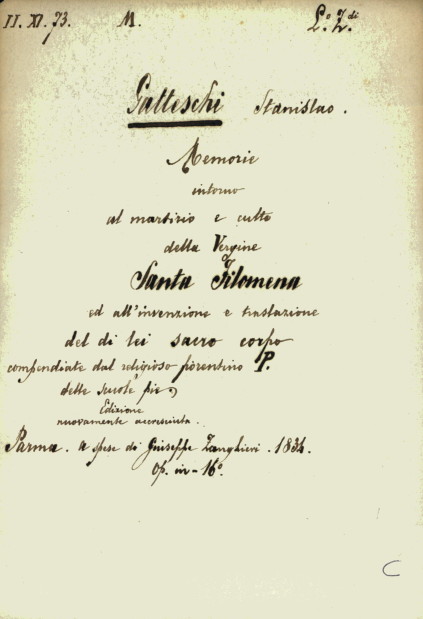 II. XI. 73. M. L.º 2.di
Gatteschi Stanislao.
Memorie
intorno
al martirio e culto
della Vergine
Santa Filomena
ed all'invenzione e traslazione
del di lei sacro corpo
compendiate dal religioso fiorentino P.
delle scuole pie,
Edizione
nuovamente accresciuta.
Parma. a spese di Giuseppe Zanghieri. 1834.
Op. in-16º
C